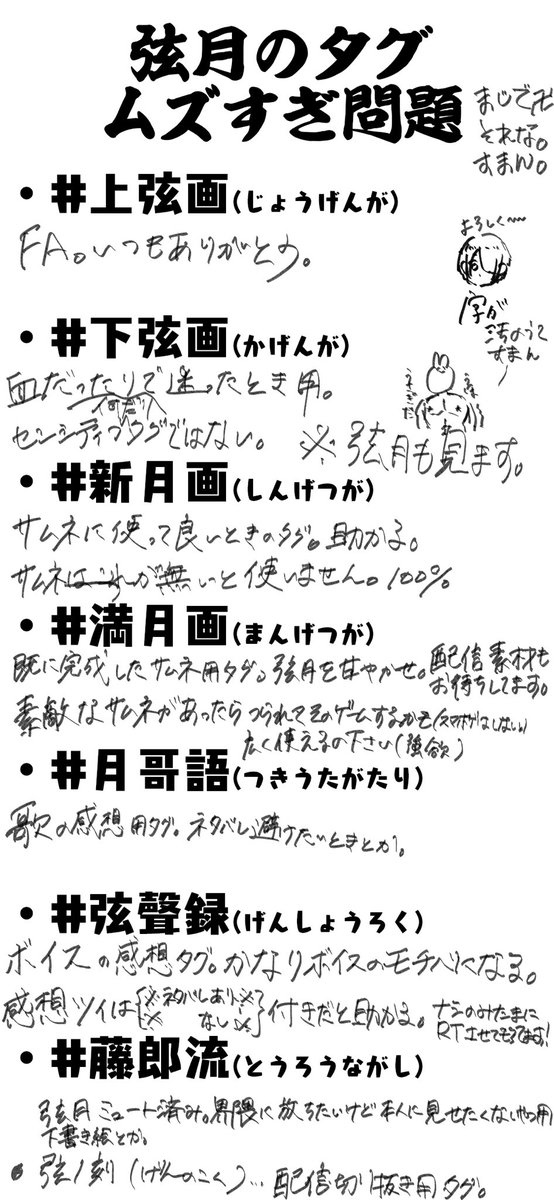 弦月のタグ
ムズすぎ問題
まじで卍
それな。
すまん。
・#上弦画(じょうげんが)
FA。いつもありがとう。
よろしく〜
字が
汚のうて
すまん
・#下弦画(かげんが)
血だったりで迷ったとき用。
センシティブタグではない。
※弦月も見ます。
・#新月画(しんげつが)
サムネに使って良いときのタグ。助かる。
サムネはこれが無いと使いません。100%
・#満月画(まんげつが)
既に完成したサムネ用タグ。弦月を甘やかせ。
配信素材も
お待ちしてます。
素敵なサムネがあったらつられてそのゲームするかも(スマホゲはしない)
広く使えるの下さい(強欲)
・#月哥語(つきうたがたり)
歌の感想用タグ。ネタバレ避けたいときとか。
・#弦聲録(げんしょうろく)
ボイスの感想タグ。かなりボイスのモチベになる。
感想ツイは{※ネタバレあり※
※ なし※}付きだと助かる。
ナシのみたまに
RTさせてもろてます!
・#藤郎流(とうろうながし)
弦月ミュート済み。界隈に放ちたいけど本人に見せたくないやつ用
下書き絵とか。
・弦ノ刻(げんのこく)…配信切り抜き用タグ。